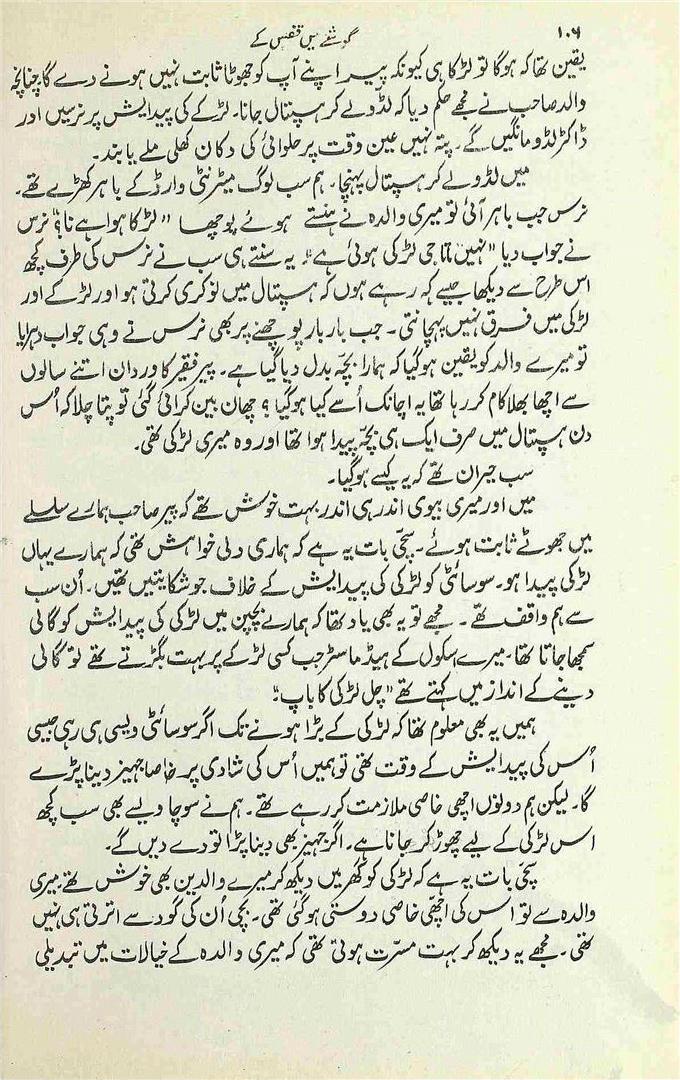 ۱۰۶
گوشے میں قفس کے
یقین تھا کہ ہوگا تو لڑکا ہی کیونکہ پیر اپنے آپ کو جھوٹا ثابت نہیں ہونے دے گا چنانچہ
والد صاحب نے مجھے حکم دیا کہ لڈو لے کر ہسپتال جانا۔ لڑکے کی پیدایش پر نرسیں اور
ڈاکٹر لڈو مانگیں گے۔ پتہ نہیں عین وقت پر حلوائی کی دکان کھلی ملے یا بند۔
میں لڈو لے کر ہسپتال پہنچا۔ ہم سب لوگ میٹرنٹی وارڈ کے باہر کھڑے تھے۔
نرس جب باہر آئی تو میری والدہ نے ہنستے ہوئے پوچھا "لڑکا ہوا ہے نا؟" نرس
نے جواب دیا "نہیں ماتا جی لڑکی ہوئی ہے"۔ یہ سنتے ہی سب نے نرس کی طرف کچھ
اس طرح سے دیکھا جیسے کہ رہے ہوں کہ ہسپتال میں نوکری کرتی ہو اور لڑکے اور
لڑکی میں فرق نہیں پہچانتی۔ جب بار بار پوچھنے پر بھی نرس نے وہی جواب دہرایا
تو میرے والد کو یقین ہوگیا کہ ہمارا بچہ بدل دیا گیا ہے۔ پیر فقیر کا وردان اتنے سالوں
سے اچھا بھلا کام کر رہا تھا یہ اچانک اُسے کیا ہوگیا؟ چھان بین کرائی گئی تو پتا چلا کہ اُس
دن ہسپتال میں صرف ایک ہی بچہ پیدا ہوا تھا اور وہ میری لڑکی تھی۔
سب حیران تھے کہ یہ کیسے ہوگیا۔
میں اور میری بیوی اندر ہی اندر بہت خوش تھے کہ پیر صاحب ہمارے سلسلے
میں جھوٹے ثابت ہوئے۔ سچّی بات یہ ہے کہ ہماری دلی خواہش تھی کہ ہمارے یہاں
لڑکی پیدا ہو۔ سوسائٹی کو لڑکی کی پیدایش کے خلاف جو شکایتیں تھیں۔ اُن سب
سے ہم واقف تھے۔ مجھے تو یہ بھی یاد تھا کہ ہمارے بچپن میں لڑکی کی پیدایش کو گالی
سمجھا جاتا تھا۔ میرے اسکول کے ہیڈماسٹر جب کسی لڑکے پر بہت بگڑتے تھے تو گالی
دینے کے انداز میں کہتے تھے "چل لڑکی کا باپ"۔
ہمیں یہ بھی معلوم تھا کہ لڑکی کے بڑا ہونے تک اگر سوسائٹی ویسی ہی رہی جیسی
اُس کی پیدایش کے وقت تھی تو ہمیں اُس کی شادی پر خاصا جہیز دینا پڑے
گا۔ لیکن ہم دونوں اچھی خاصی ملازمت کر رہے تھے۔ ہم نے سوچا ویسے بھی سب کچھ
اس لڑکی کے لیے چھوڑ کر جانا ہے۔ اگر جہیز بھی دینا پڑا تو دے دیں گے۔
سچّی بات یہ ہے کہ لڑکی کو گھر میں دیکھ کر میرے والدین بھی خوش تھے۔ میری
والدہ سے تو اس کی اچّھی خاصی دوستی ہوگئی تھی۔ بچی اُن کی گود سے اترتی ہی نہیں
تھی۔ مجھے یہ دیکھ کر بہت مسرّت ہوتی تھی کہ میری والدہ کے خیالات میں تبدیلی